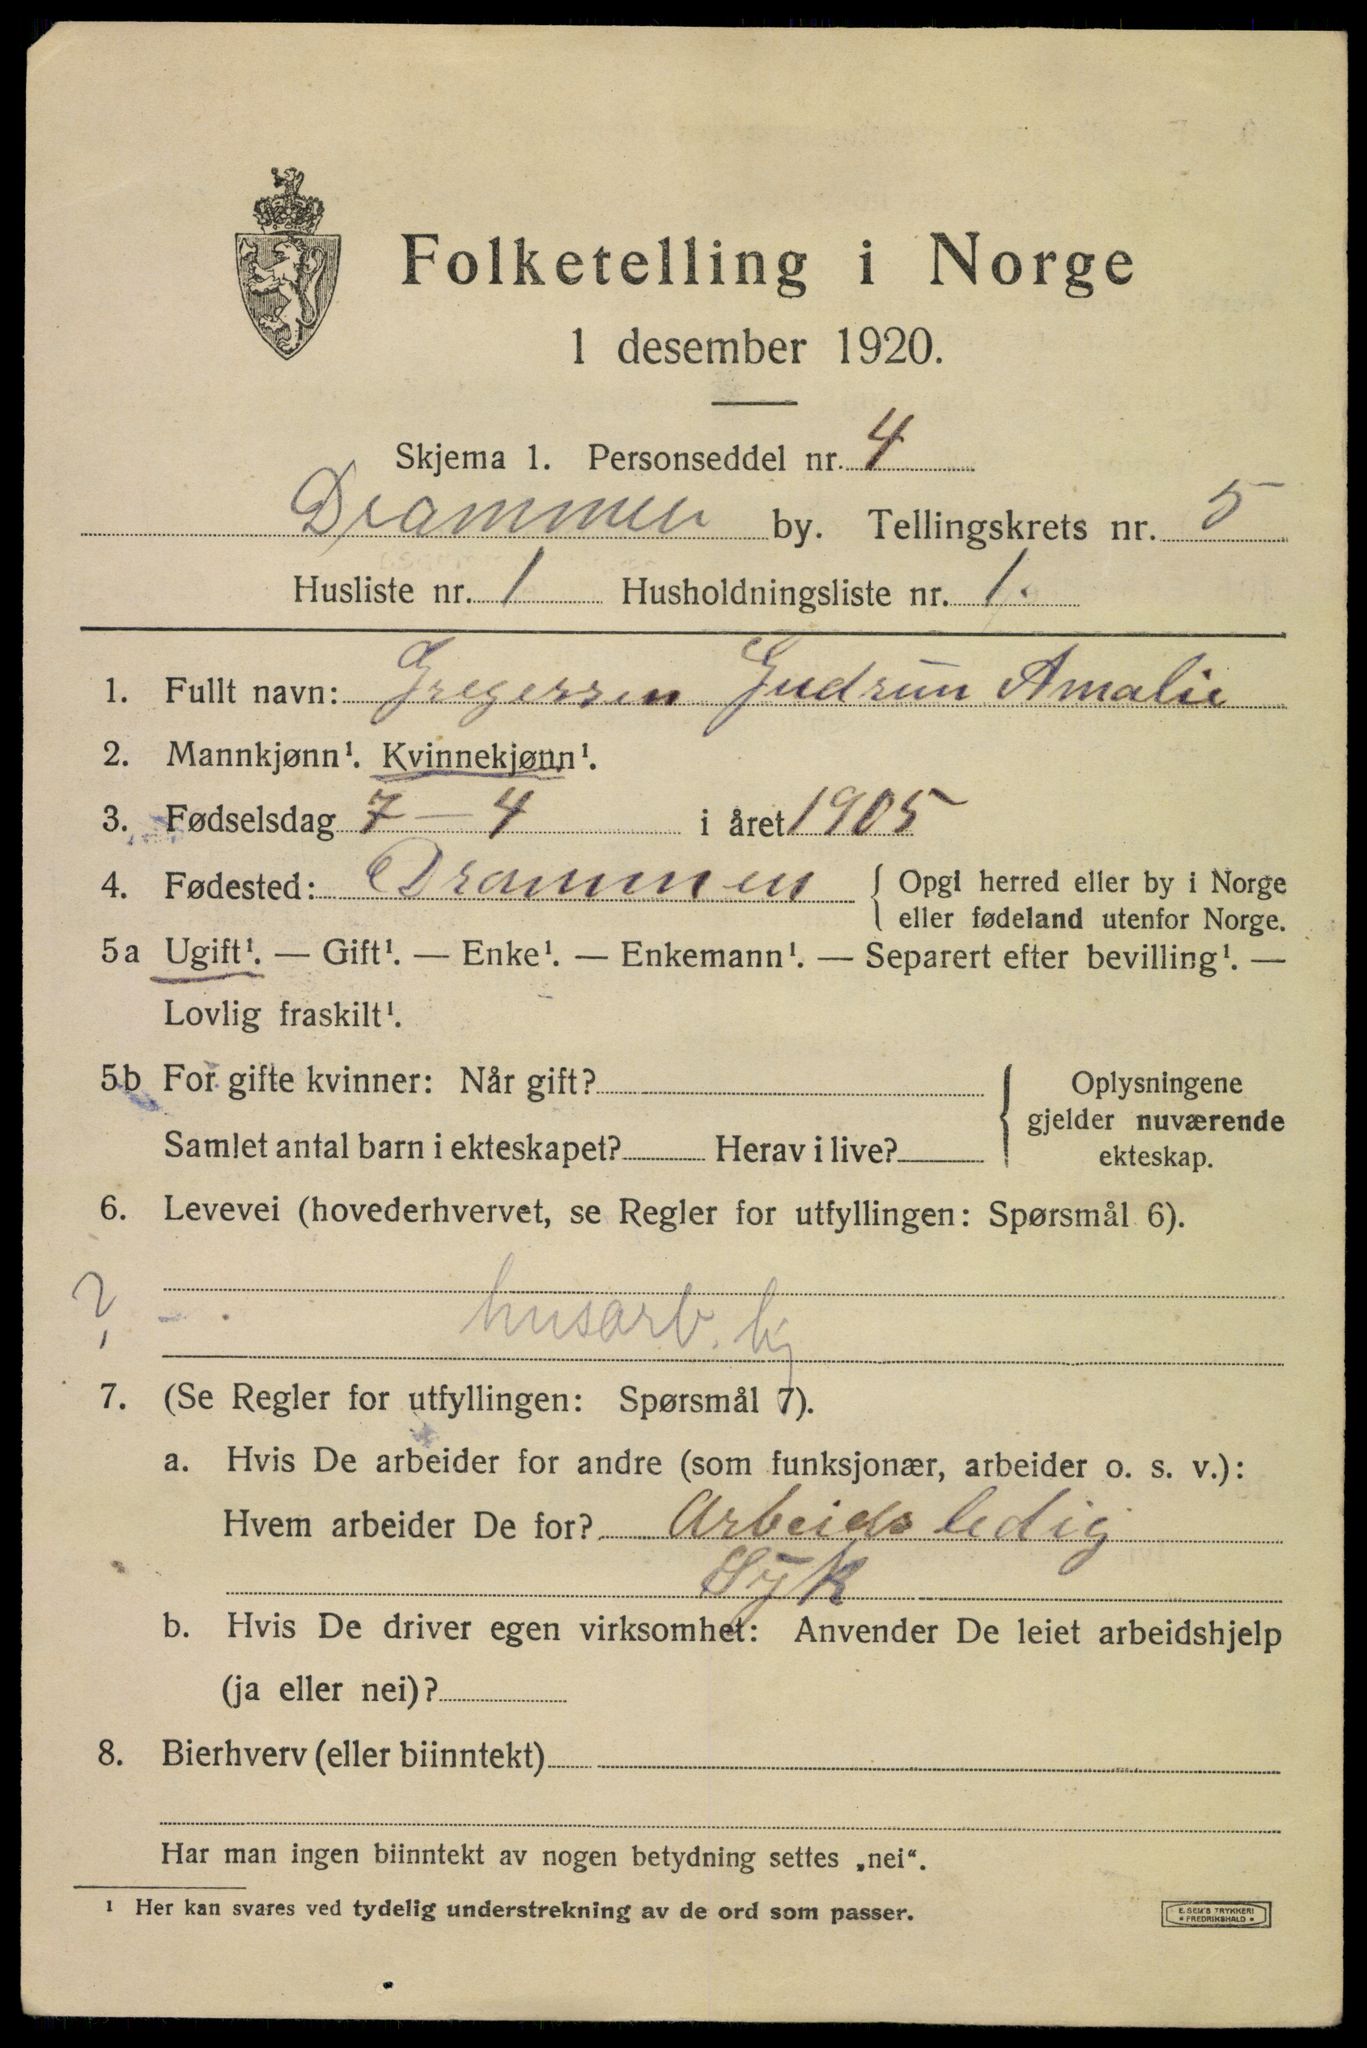 Folketelling i Norge
1 desember 1920.
Skjema 1. Personseddel nr. 4
Drammen by. Tellingskrets nr. 5
Husliste nr. 1 Husholdningsliste nr. 1.
1. Fullt navn: Gregersen Gudrun Amalie
2. Mannkjønn¹. Kvinnekjønn¹.
3. Fødselsdag 7 – 4 i året 1905
4. Fødested: Drammen { Opgi herred eller by i Norge
eller fødeland utenfor Norge.
5a Ugift¹. — Gift¹. — Enke¹. — Enkemann¹. — Separert efter bevilling¹. —
Lovlig fraskilt¹.
5b For gifte kvinner: Når gift?
Samlet antal barn i ekteskapet? Herav i live?
{ Oplysningene
gjelder nuværende
ekteskap.
6. Levevei (hovederhvervet, se Regler for utfyllingen: Spørsmål 6).
? husarb.
7. (Se Regler for utfyllingen: Spørsmål 7).
a. Hvis De arbeider for andre (som funksjonær, arbeider o. s. v.):
Hvem arbeider De for? Arbeids ledig
Syk
b. Hvis De driver egen virksomhet: Anvender De leiet arbeidshjelp
(ja eller nei)?
8. Bierhverv (eller biinntekt)
Har man ingen biinntekt av nogen betydning settes „nei“.
¹ Her kan svares ved tydelig understrekning av de ord som passer.
E. SEM'S TRYKKERI
* FREDRIKSHALD *